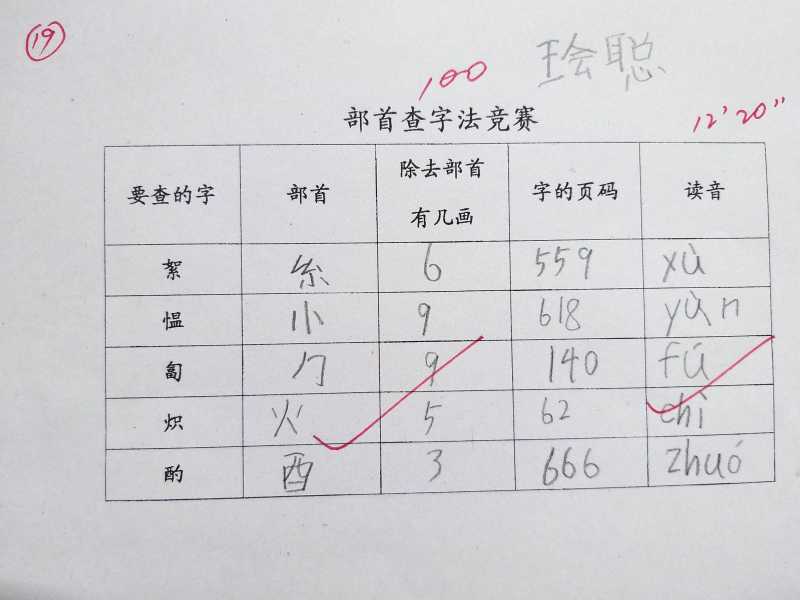 19
100 王绘聪
部首查字法竞赛 12'20"
要查的字 部首 除去部首有几画 字的页码 读音
絮 糸 6 559 xù
愠 忄 9 618 yùn
匐 勹 9 140 fú
炽 火 5 62 chì
酌 酉 3 666 zhuó